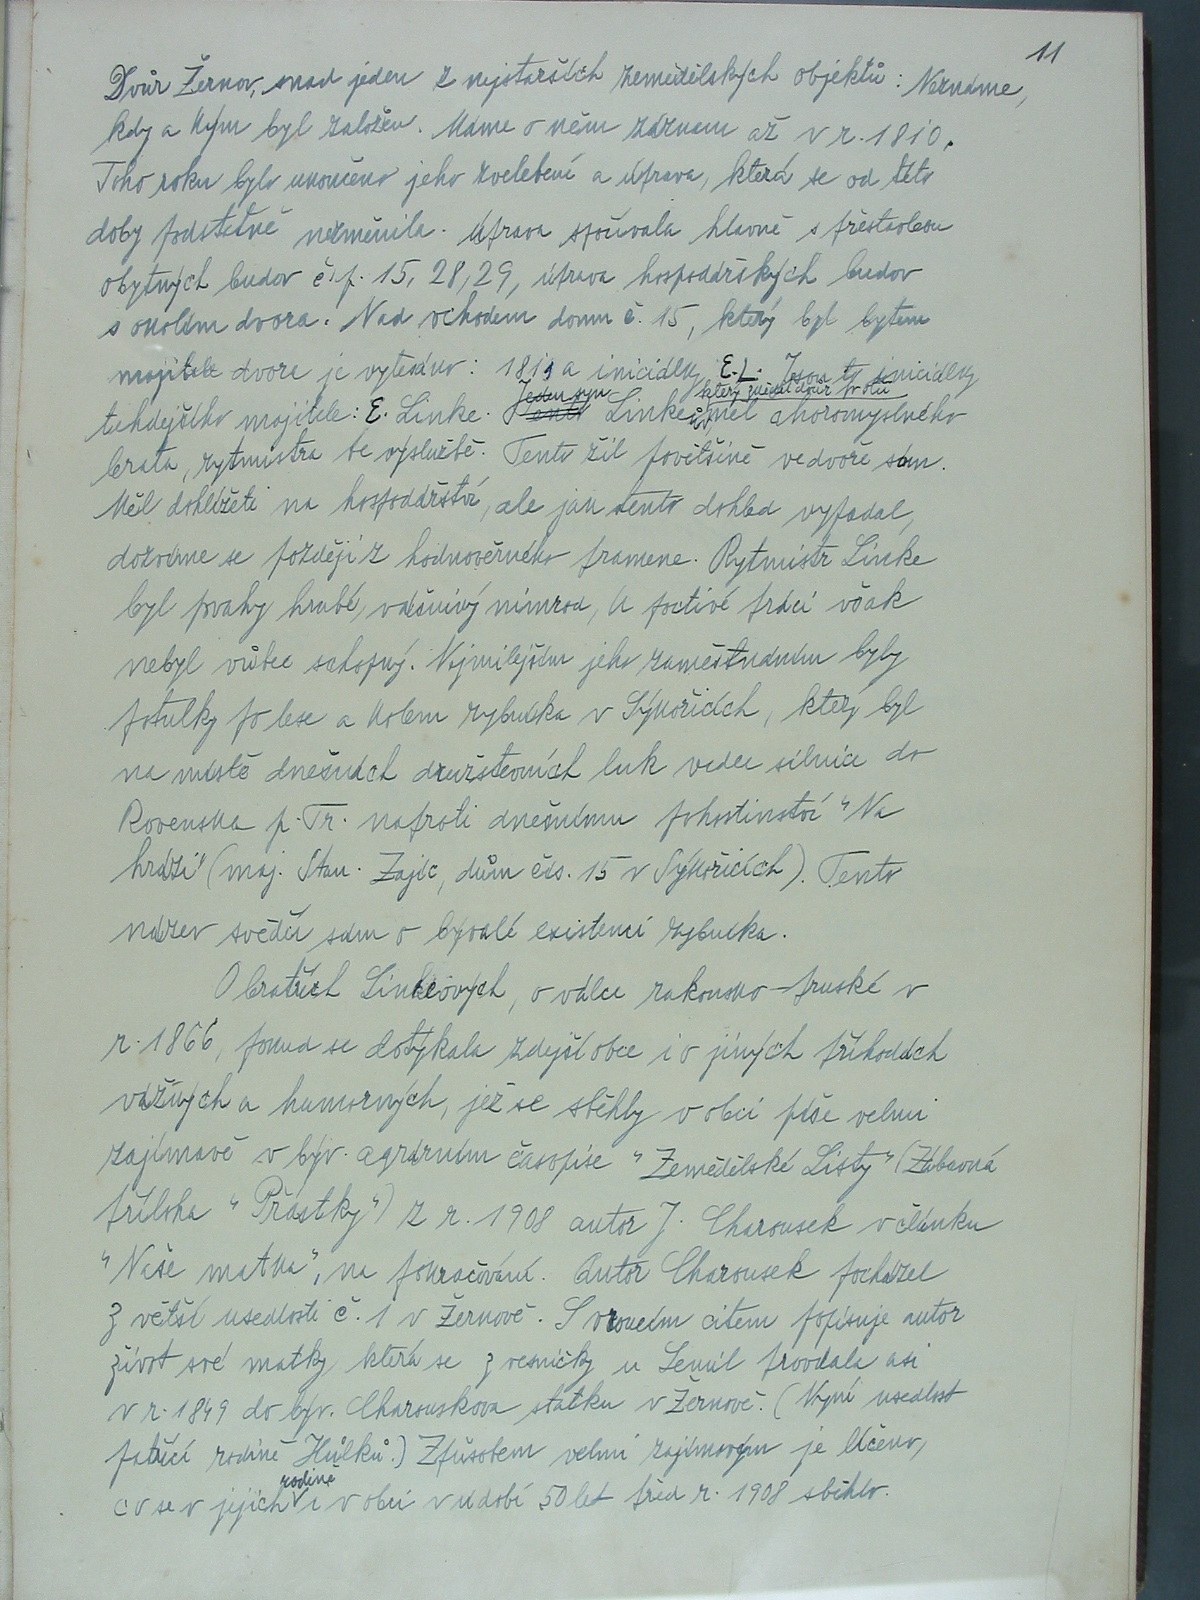 11
Dvůr Žernov, snad jeden z nejstarších zemědělských objektů: Neznáme,
kdy a kým byl založen. Máme o něm záznam až v r. 1810.
Toho roku bylo ukončeno jeho zvelebení a úprava, která se od této
doby podstatně nezměnila. Úprava spočívala hlavně s přestavbou
obytných budov č. p. 15, 28, 29, úprava hospodářských budov
s okolím dvora. Nad vchodem domu č. 15, který byl bytem
majitele dvora je vytesáno: 1819 a iniciálky E. L. Jsou to iniciálky
Jeden syn který zdědil dvůr po otci
tehdejšího majitele: E. Linke. Tento Linke měl choromyslného
bratra, rytmistra ve výslužbě. Tento žil povětšině ve dvoře sám.
Měl dohlížeti na hospodářství, ale jak tento dohled vypadal,
dozvíme se později z hodnověrného pramene. Rytmistr Linke
byl povahy hrubé, vášnivý nimrod, k poctivé práci však
nebyl vůbec schopný. Nejmilejším jeho zaměstnáním byly
potulky po lese a kolem rybníka v Sýkořicích, který byl
na místě dnešních družstevních luk vedle silnice do
Rovenska p. Tr. naproti dnešnímu pohostinství "Na
hrázi" (maj. Stan. Zajíc, dům čís. 15 v Sýkořicích). Tento
název svědčí sám o bývalé existenci rybníka.
O bratřích Linkeových, o válce rakousko-pruské v
r. 1866, pokud se dotýkala zdejší obce i o jiných příhodách
vážných a humorných, jež se sběhly v obci píše velmi
zajímavě v býv. agrárním časopise "Zemědělské Listy" (Zábavná
příloha "Přástky") z r. 1908 autor J. Charousek v článku
"Naše matka", na pokračování. Autor Charousek pocházel
z větší usedlosti č. 1 v Žernově. S vroucím citem popisuje autor
život své matky, která se z vesničky u Semil provdala asi
v r. 1849 do býv. Charouskova statku v Žernově. (Nyní usedlost
patřící rodině Hůlků.) Způsobem velmi zajímavým je líčeno,
rodině
co se v jejich i v obci v údobí 50 let před r. 1908 sběhlo.